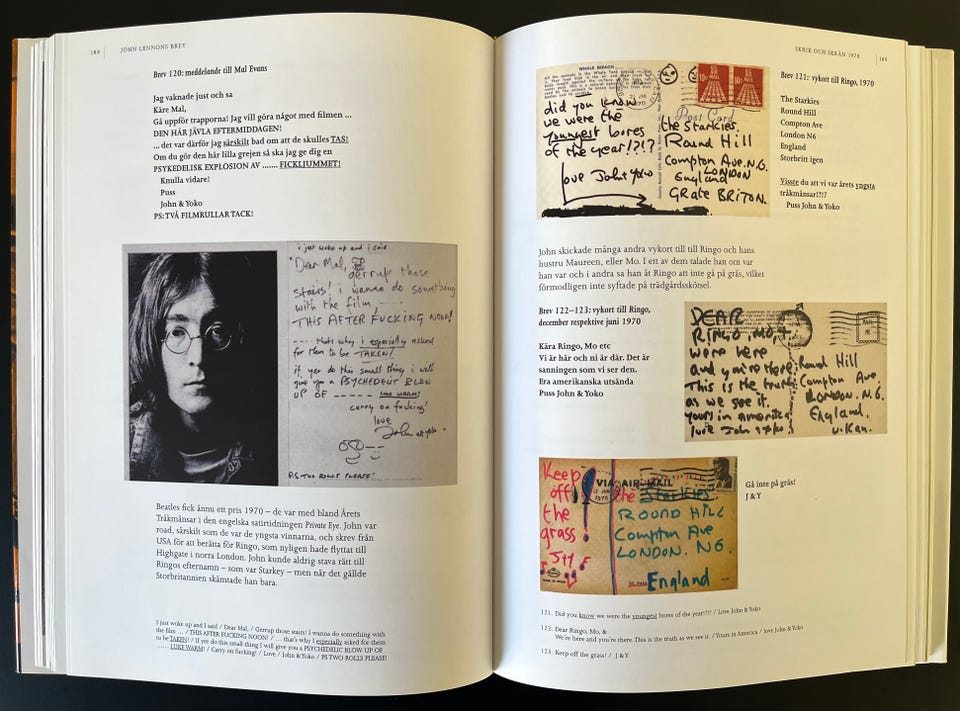 188 | JOHN LENNONS BREV
Brev 120: meddelande till Mal Evans
Jag vaknade just och sa
Käre Mal,
Gå uppför trapporna! Jag vill göra något med filmen ...
DEN HÄR JÄVLA EFTERMIDDAGEN!
... det var därför jag särskilt bad om att de skulles TAS!
Om du gör den här lilla grejen så ska jag ge dig en
PSYKEDELISK EXPLOSION AV ....... FICKLJUMMET!
Knulla vidare!
Puss
John & Yoko
PS: TVÅ FILMRULLAR TACK!
i just woke up and i said
"Dear Mal,
gerrup those
stairs! i wanna do something
with the film, ----
THIS AFTER FUCKING NOON!
---- thats why i especially asked
for them to be TAKEN!
if yer do this small thing i will
give you a PSYCHEDELIC BLOW
UP OF ----- LUKE WARM!
carry on fucking!
love
John
P.S TWO ROLLS PLEASE!
Beatles fick ännu ett pris 1970 – de var med bland Årets
Tråkmånsar i den engelska satirtidningen Private Eye. John var
road, särskilt som de var de yngsta vinnarna, och skrev från
USA för att berätta för Ringo, som nyligen hade flyttat till
Highgate i norra London. John kunde aldrig stava rätt till
Ringos efternamn – som var Starkey – men när det gällde
Storbritannien skämtade han bara.
I just woke up and I said / Dear Mal, / Gerrup those stairs! I wanna do something with
the film ... / THIS AFTER FUCKING NOON! / ... that's why I especially asked for them
to be TAKEN! / If yer do this small thing I will give you a PSYCHEDELIC BLOW UP OF
....... LUKE WARM! / Carry on fucking! / Love / John & Yoko / PS TWO ROLLS PLEASE!
SKRIK OCH SKRÅN 1970 | 189
WHALE BREACH
did you know
we were the
youngest bores
of the year!?!?
love John + Yoko
Post Card
the Starkies.
Round Hill
Compton Ave. N.6.
LONDON
England
GRATE BRITON.
Brev 121: vykort till Ringo, 1970
The Starkies
Round Hill
Compton Ave
London N6
England
Storbritt igen
Visste du att vi var årets yngsta
tråkmånsar!?!?
Puss John & Yoko
John skickade många andra vykort till till Ringo och hans
hustru Maureen, eller Mo. I ett av dem talade han om var
han var och i andra sa han åt Ringo att inte gå på gräs, vilket
förmodligen inte syftade på trädgårdsskötsel.
Brev 122–123: vykort till Ringo,
december respektive juni 1970
Kära Ringo, Mo etc
Vi är här och ni är där. Det är
sanningen som vi ser den.
Era amerikanska utsända
Puss John & Yoko
DEAR
RINGO, MO, +
we're here
and you're there
This is the truth
as we see it.
yours in america
love John + yoko
Round Hill
Compton Ave
LONDON. N.6.
England.
U. Kan.
Keep
off
the
grass!
J + Y
VIA AIR MAIL
12 JUN
1970
the Starkies
ROUND HILL
Compton Ave
LONDON. N6
England
Gå inte på gräs!
J & Y
121. Did you know we were the youngest bores of the year!?!? / Love John & Yoko
122. Dear Ringo, Mo, &
We're here and you're there. This is the truth as we see it. / Yours in America / love John & Yoko
123. Keep off the grass! / J & Y